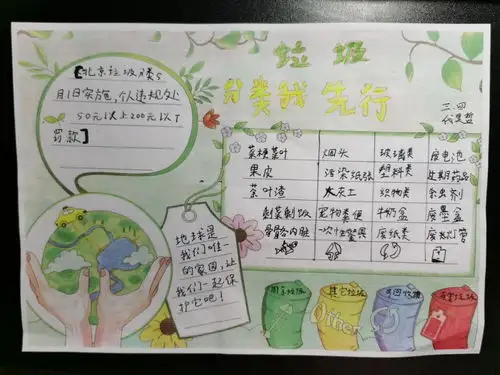 垃圾
分类我先行
三.四
【北京垃圾分类5
月1日实施,个人违规处
50元以上200元以下
罚款】
菜梗菜叶 烟头 玻璃类 废电池
果皮 污染纸张 塑料类 过期药品
茶叶渣 大灰土 织物类 杀虫剂
剩菜剩饭 宠物粪便 牛奶盒 废墨盒
骨骼内脏 一次性餐具 废纸类 废灯管
地球是
我们唯一
的家园,让
我们一起保
护它吧!
厨余垃圾 其它垃圾 可回收物 有害垃圾
Other